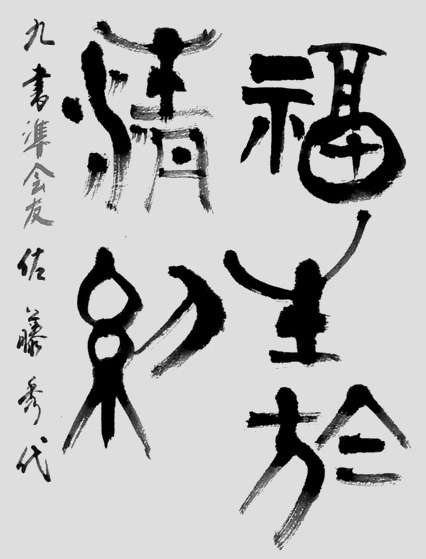 福生於
清約
九書準会友佐藤秀代